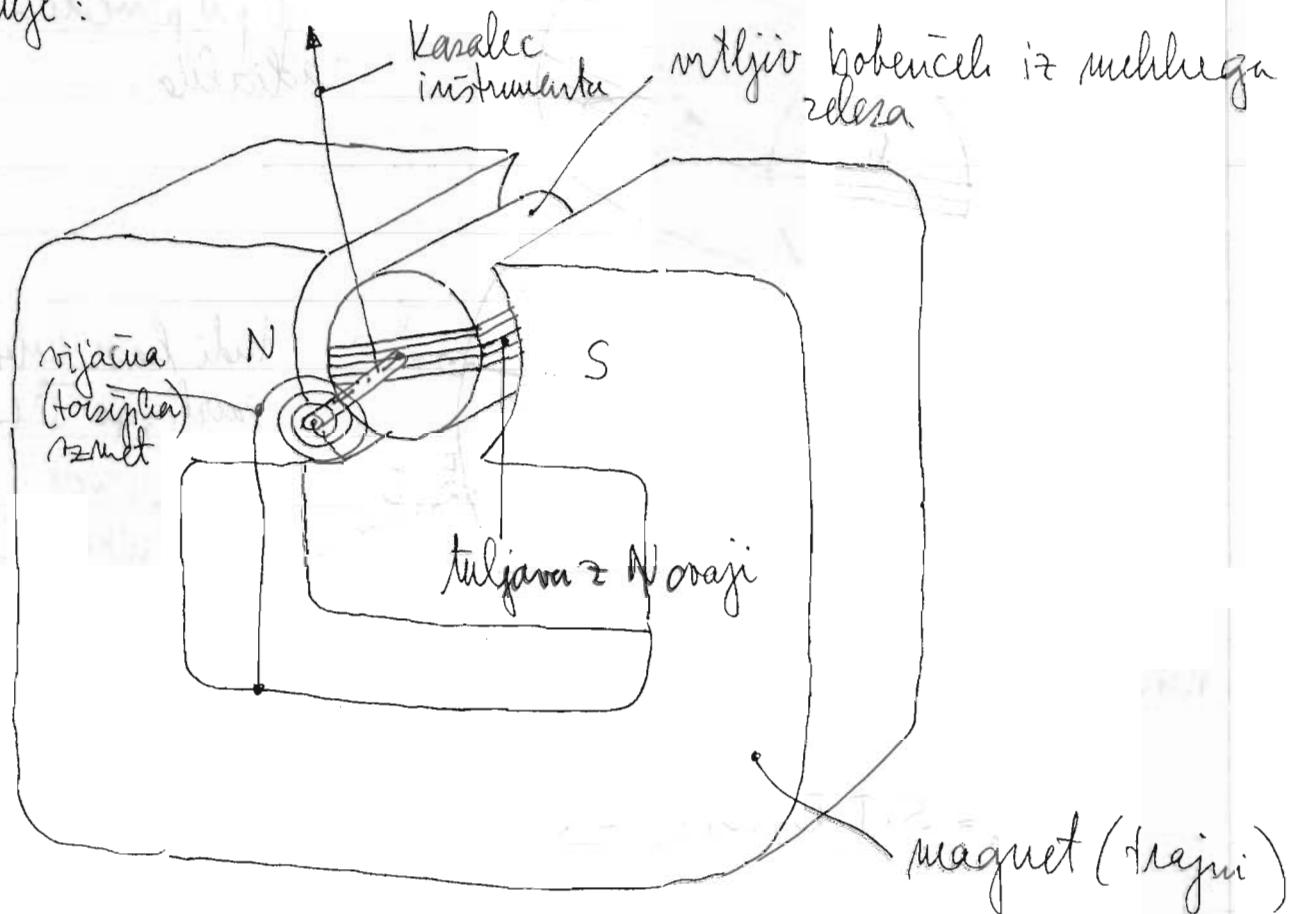 Kazalec
instrumenta
vrtljiv bobenček iz mehkega
železa
N
S
vijačna
(torzijska)
vzmet
tuljava z N ovoji
magnet (trajni)